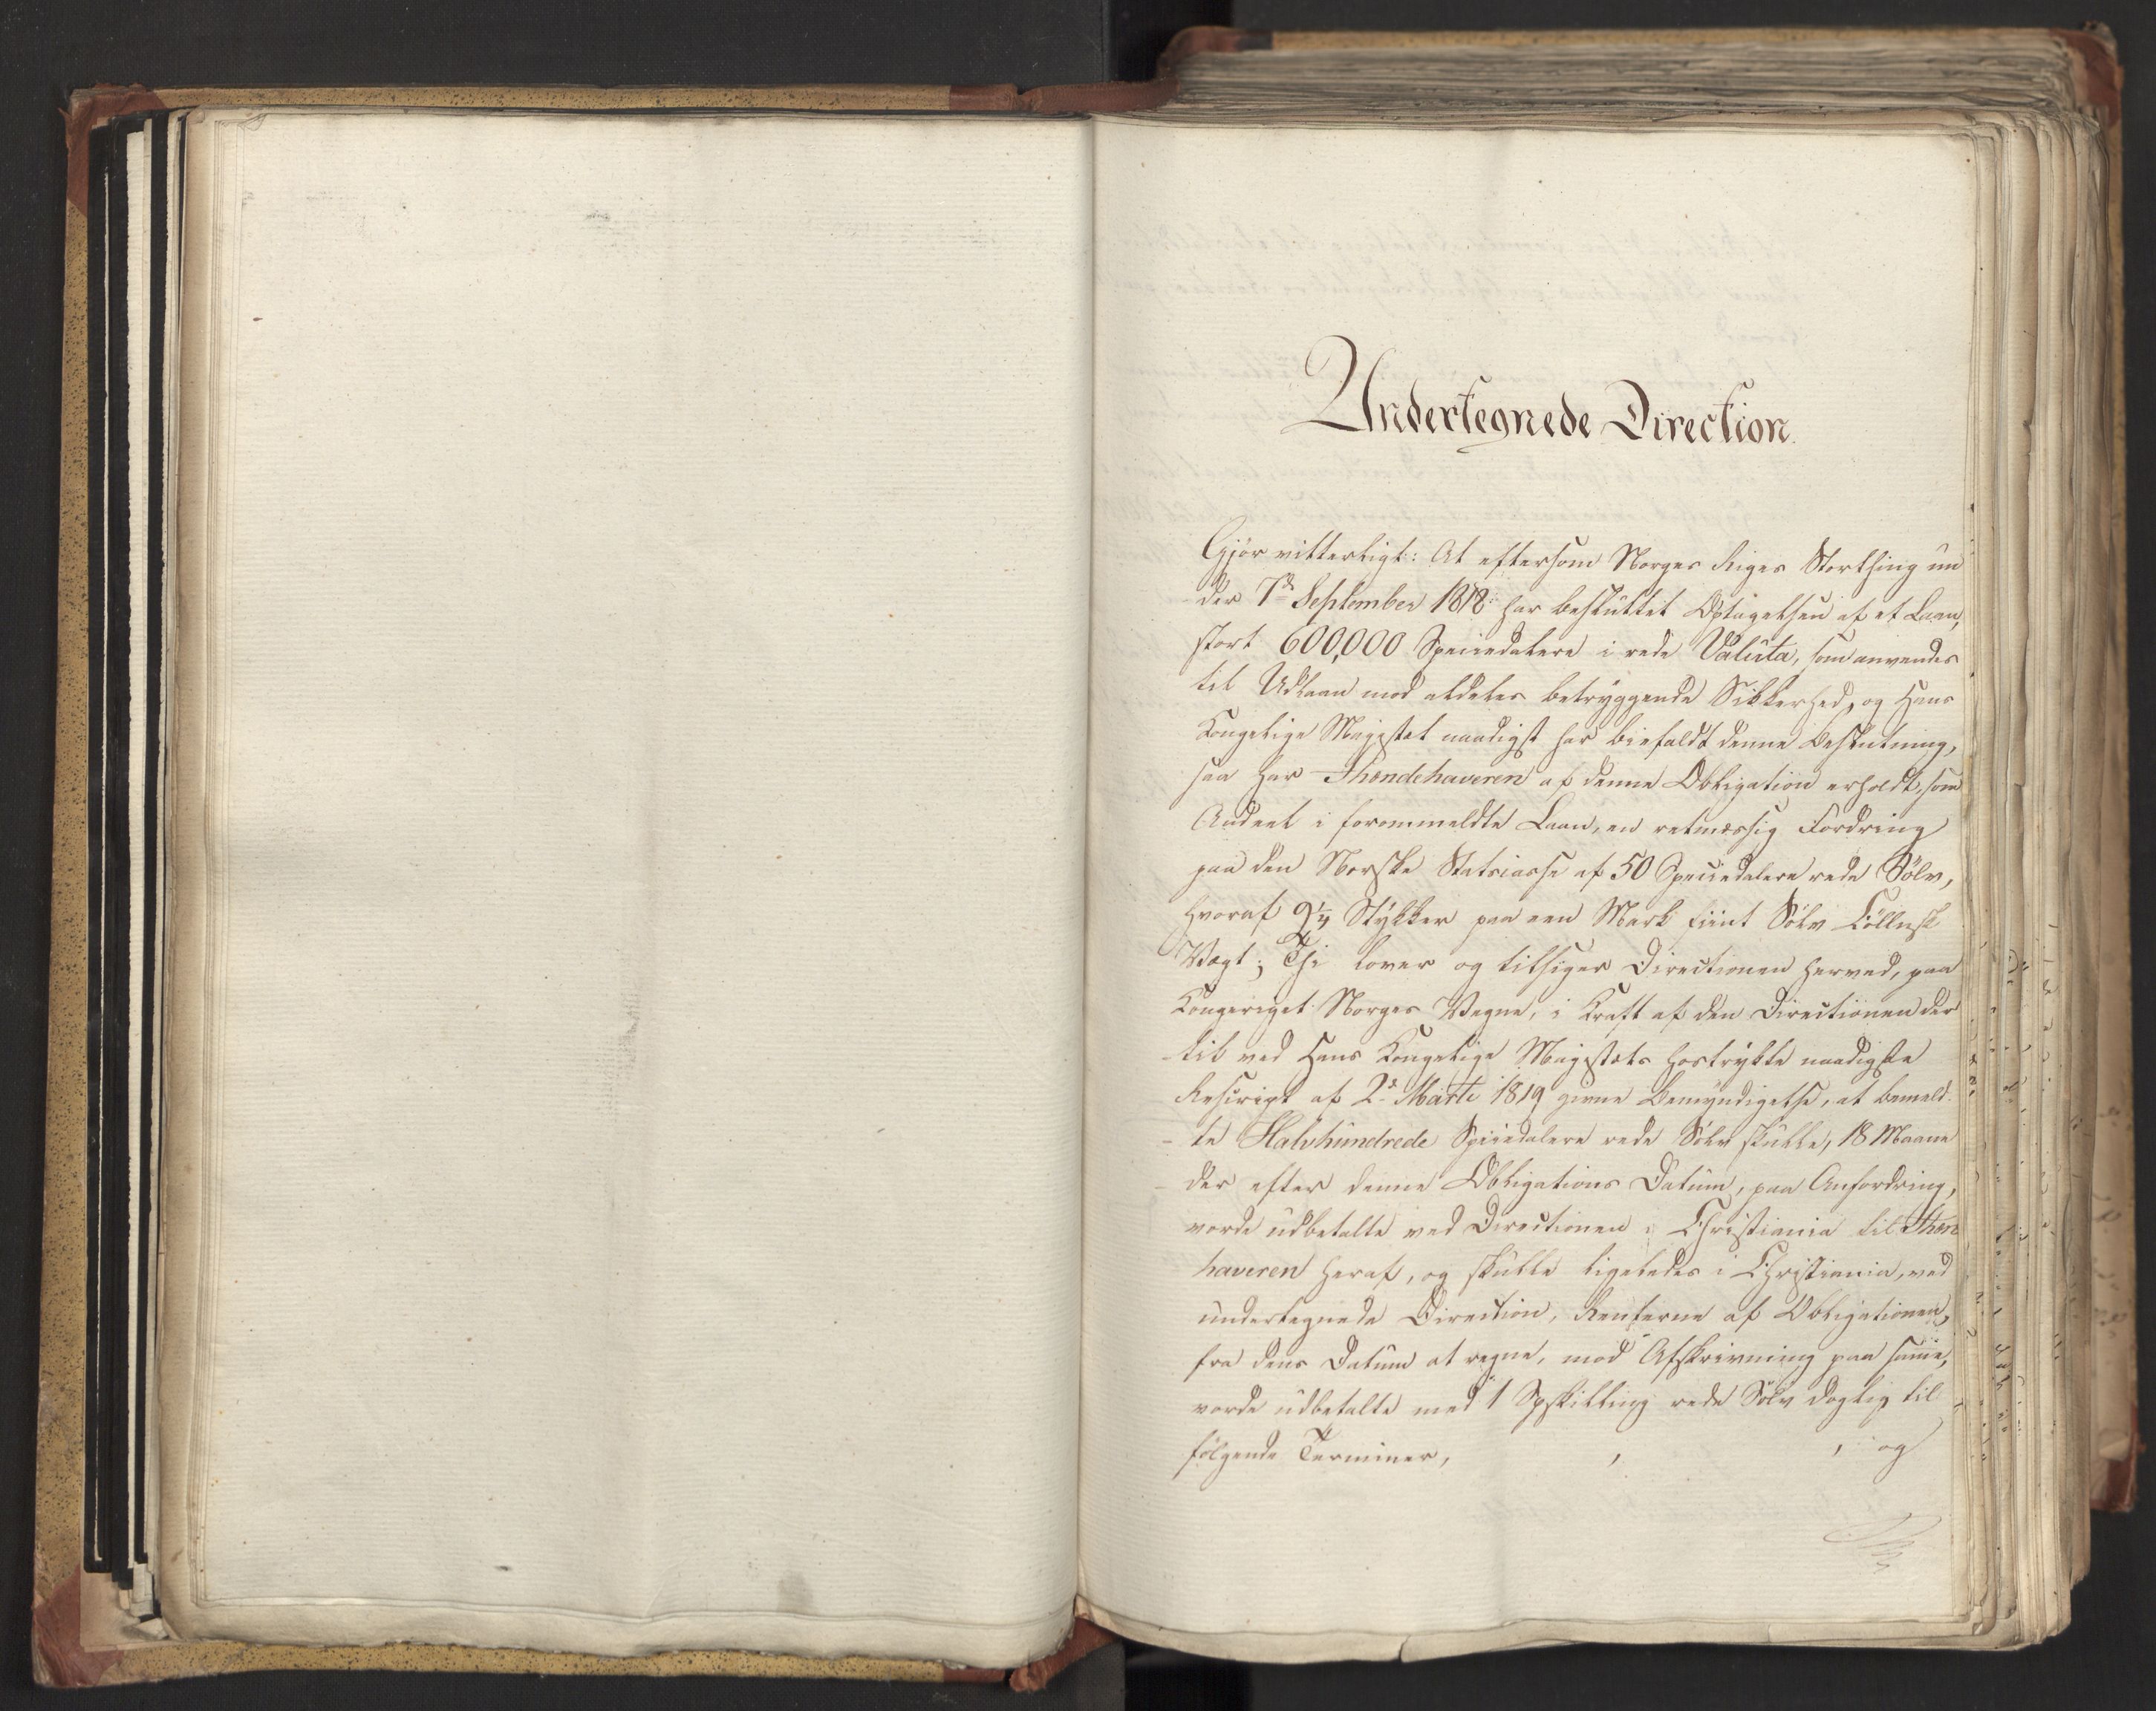 Undertegnede Direction.
Gjör vitterligt: At eftersom Norges Riges Storthing un
der 7de September 1818 har besluttet Optagelsen af et Laan,
stort 600,000 Speciedalere i rede Valuta, som anvendes
til Udlaan mod aldeles betryggende Sikkerhed, og Hans
Kongelige Majestæt naadigst har biefaldt denne Beslutning,
saa har Ihændehaveren af denne Obligation erholdt, som
Andeel i forommeldte Laan, en retmæssig Fordring
paa den Norske Statscasse af 50 Speciedalere rede Sölv,
hvoraf 9¼ Stÿkker paa een Mark fiint Sölv Cöllnsk
Vægt; Thi lover og tilsiger Directionen herved, paa
Kongeriget Norges Vegne, i Kraft af den Directionen der
til ved Hans Kongelige Majestæts höstrÿkte naadigste
Rescript af 2d Marti 1819 givne Bemÿndigelse, at bemeld-
te Halvhundrede Speciedalere rede Sölv skulle, 18 Maane
der efter denne Obligations Datum, paa Anfordring,
vorde udbetalte ved Directionen i Christiania til Ihænde
haveren heraf, og skulle ligeledes i Christiania, ved
undertegnede Direction, Renterne af Obligationen,
fra dens Datum at regne, mod Afskrivning paa samme,
vorde udbetalte med 1 Spskilling rede Sölv daglig til
fölgende Terminer, , , og